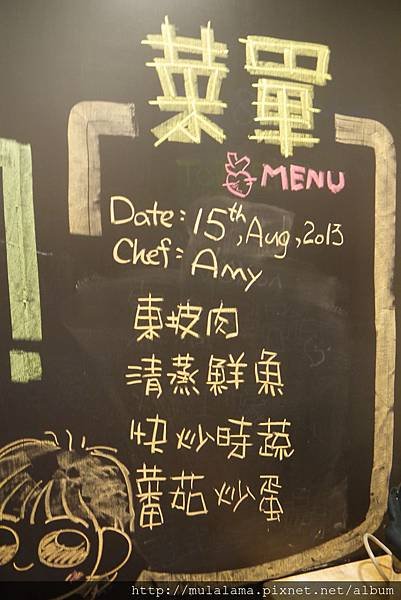 菜單
MENU
Date: 15th, Aug, 2013
Chef: Amy
東坡肉
清蒸鮮魚
快炒時蔬
蕃茄炒蛋
!
http://mulalama.pixnet.net/album